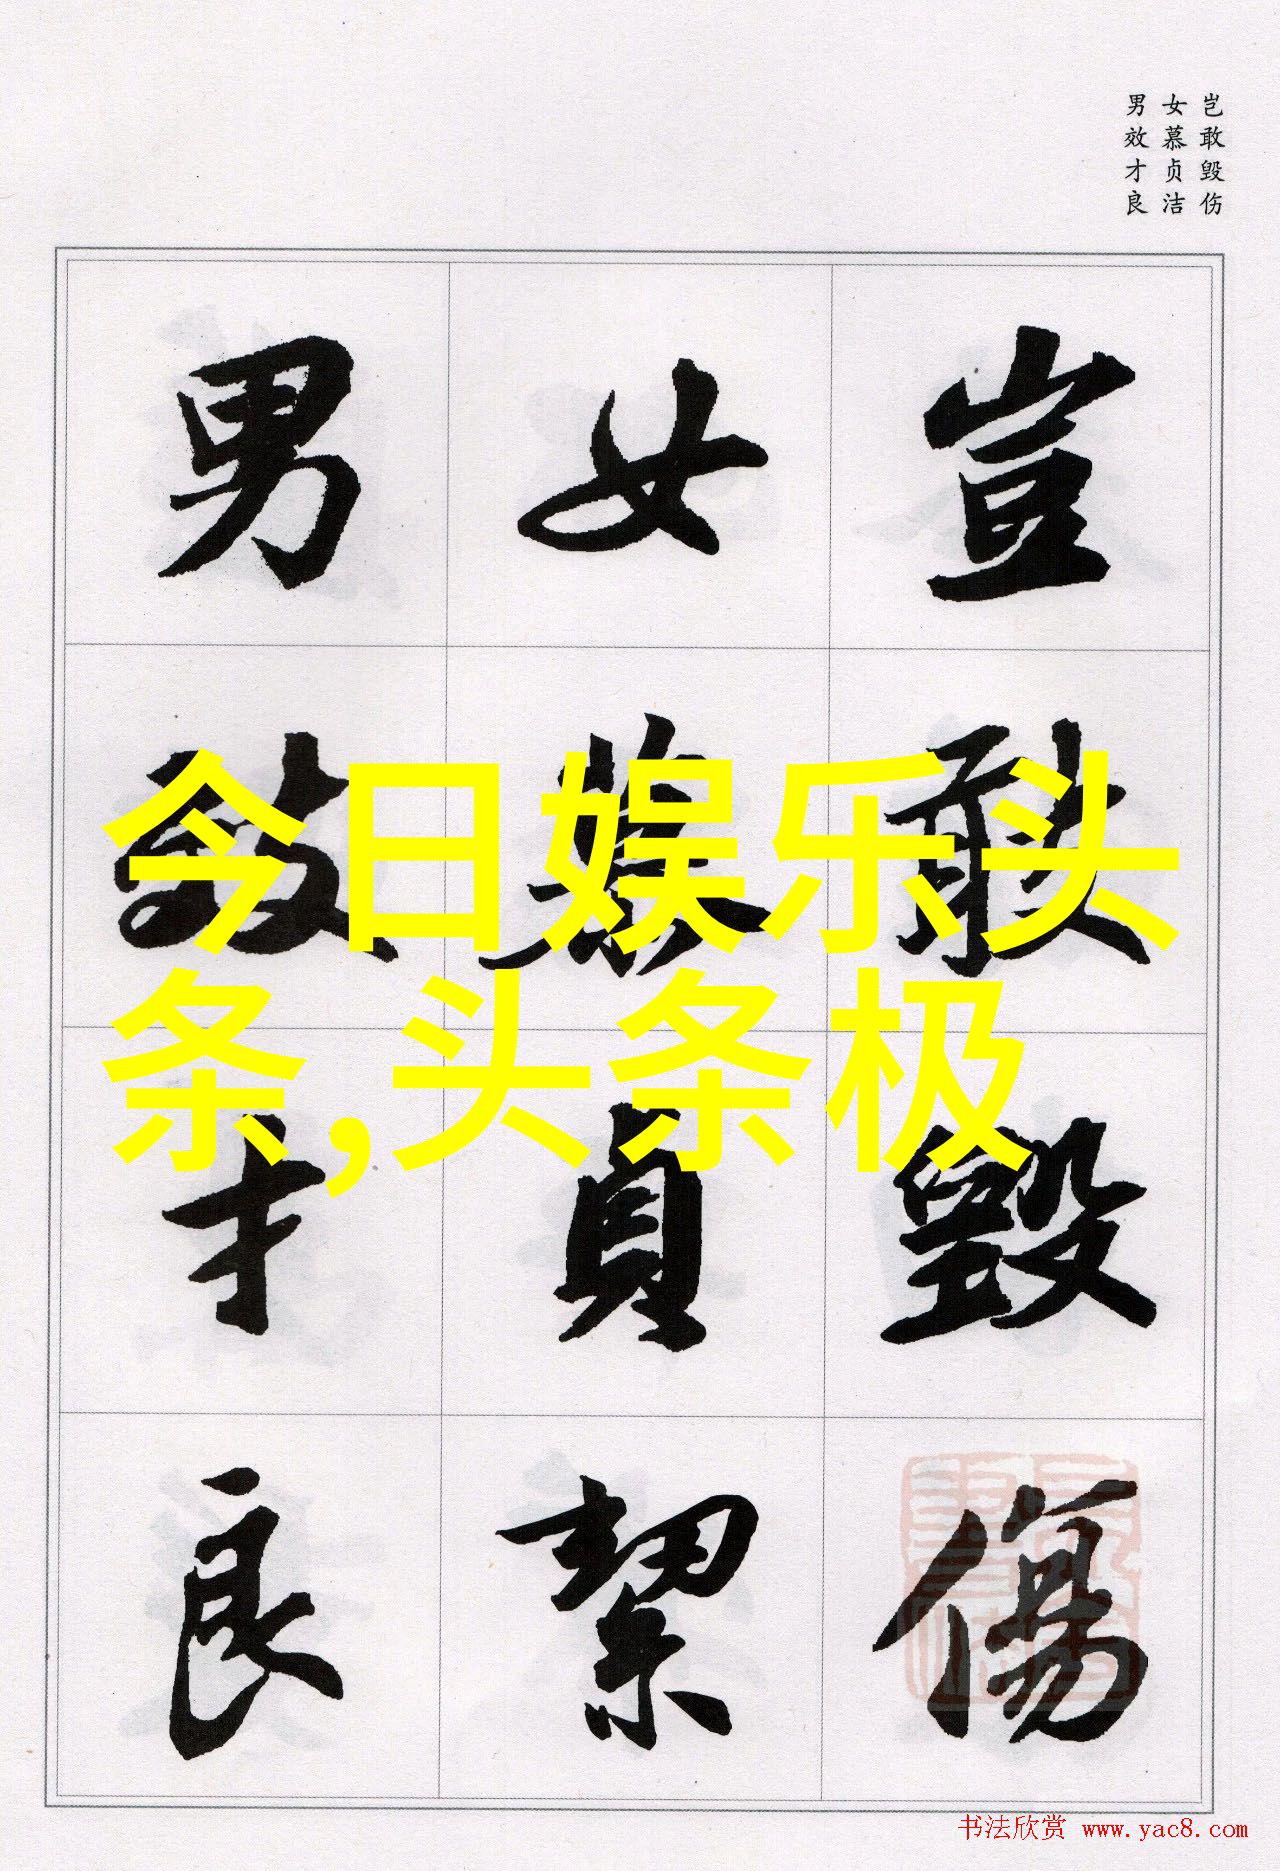 岂敢毁伤
女慕贞洁
男效才良
豈敢毀傷
女慕貞絜
男效才良
今日娱乐头
条,头条极
书法欣赏 www.yac8.com